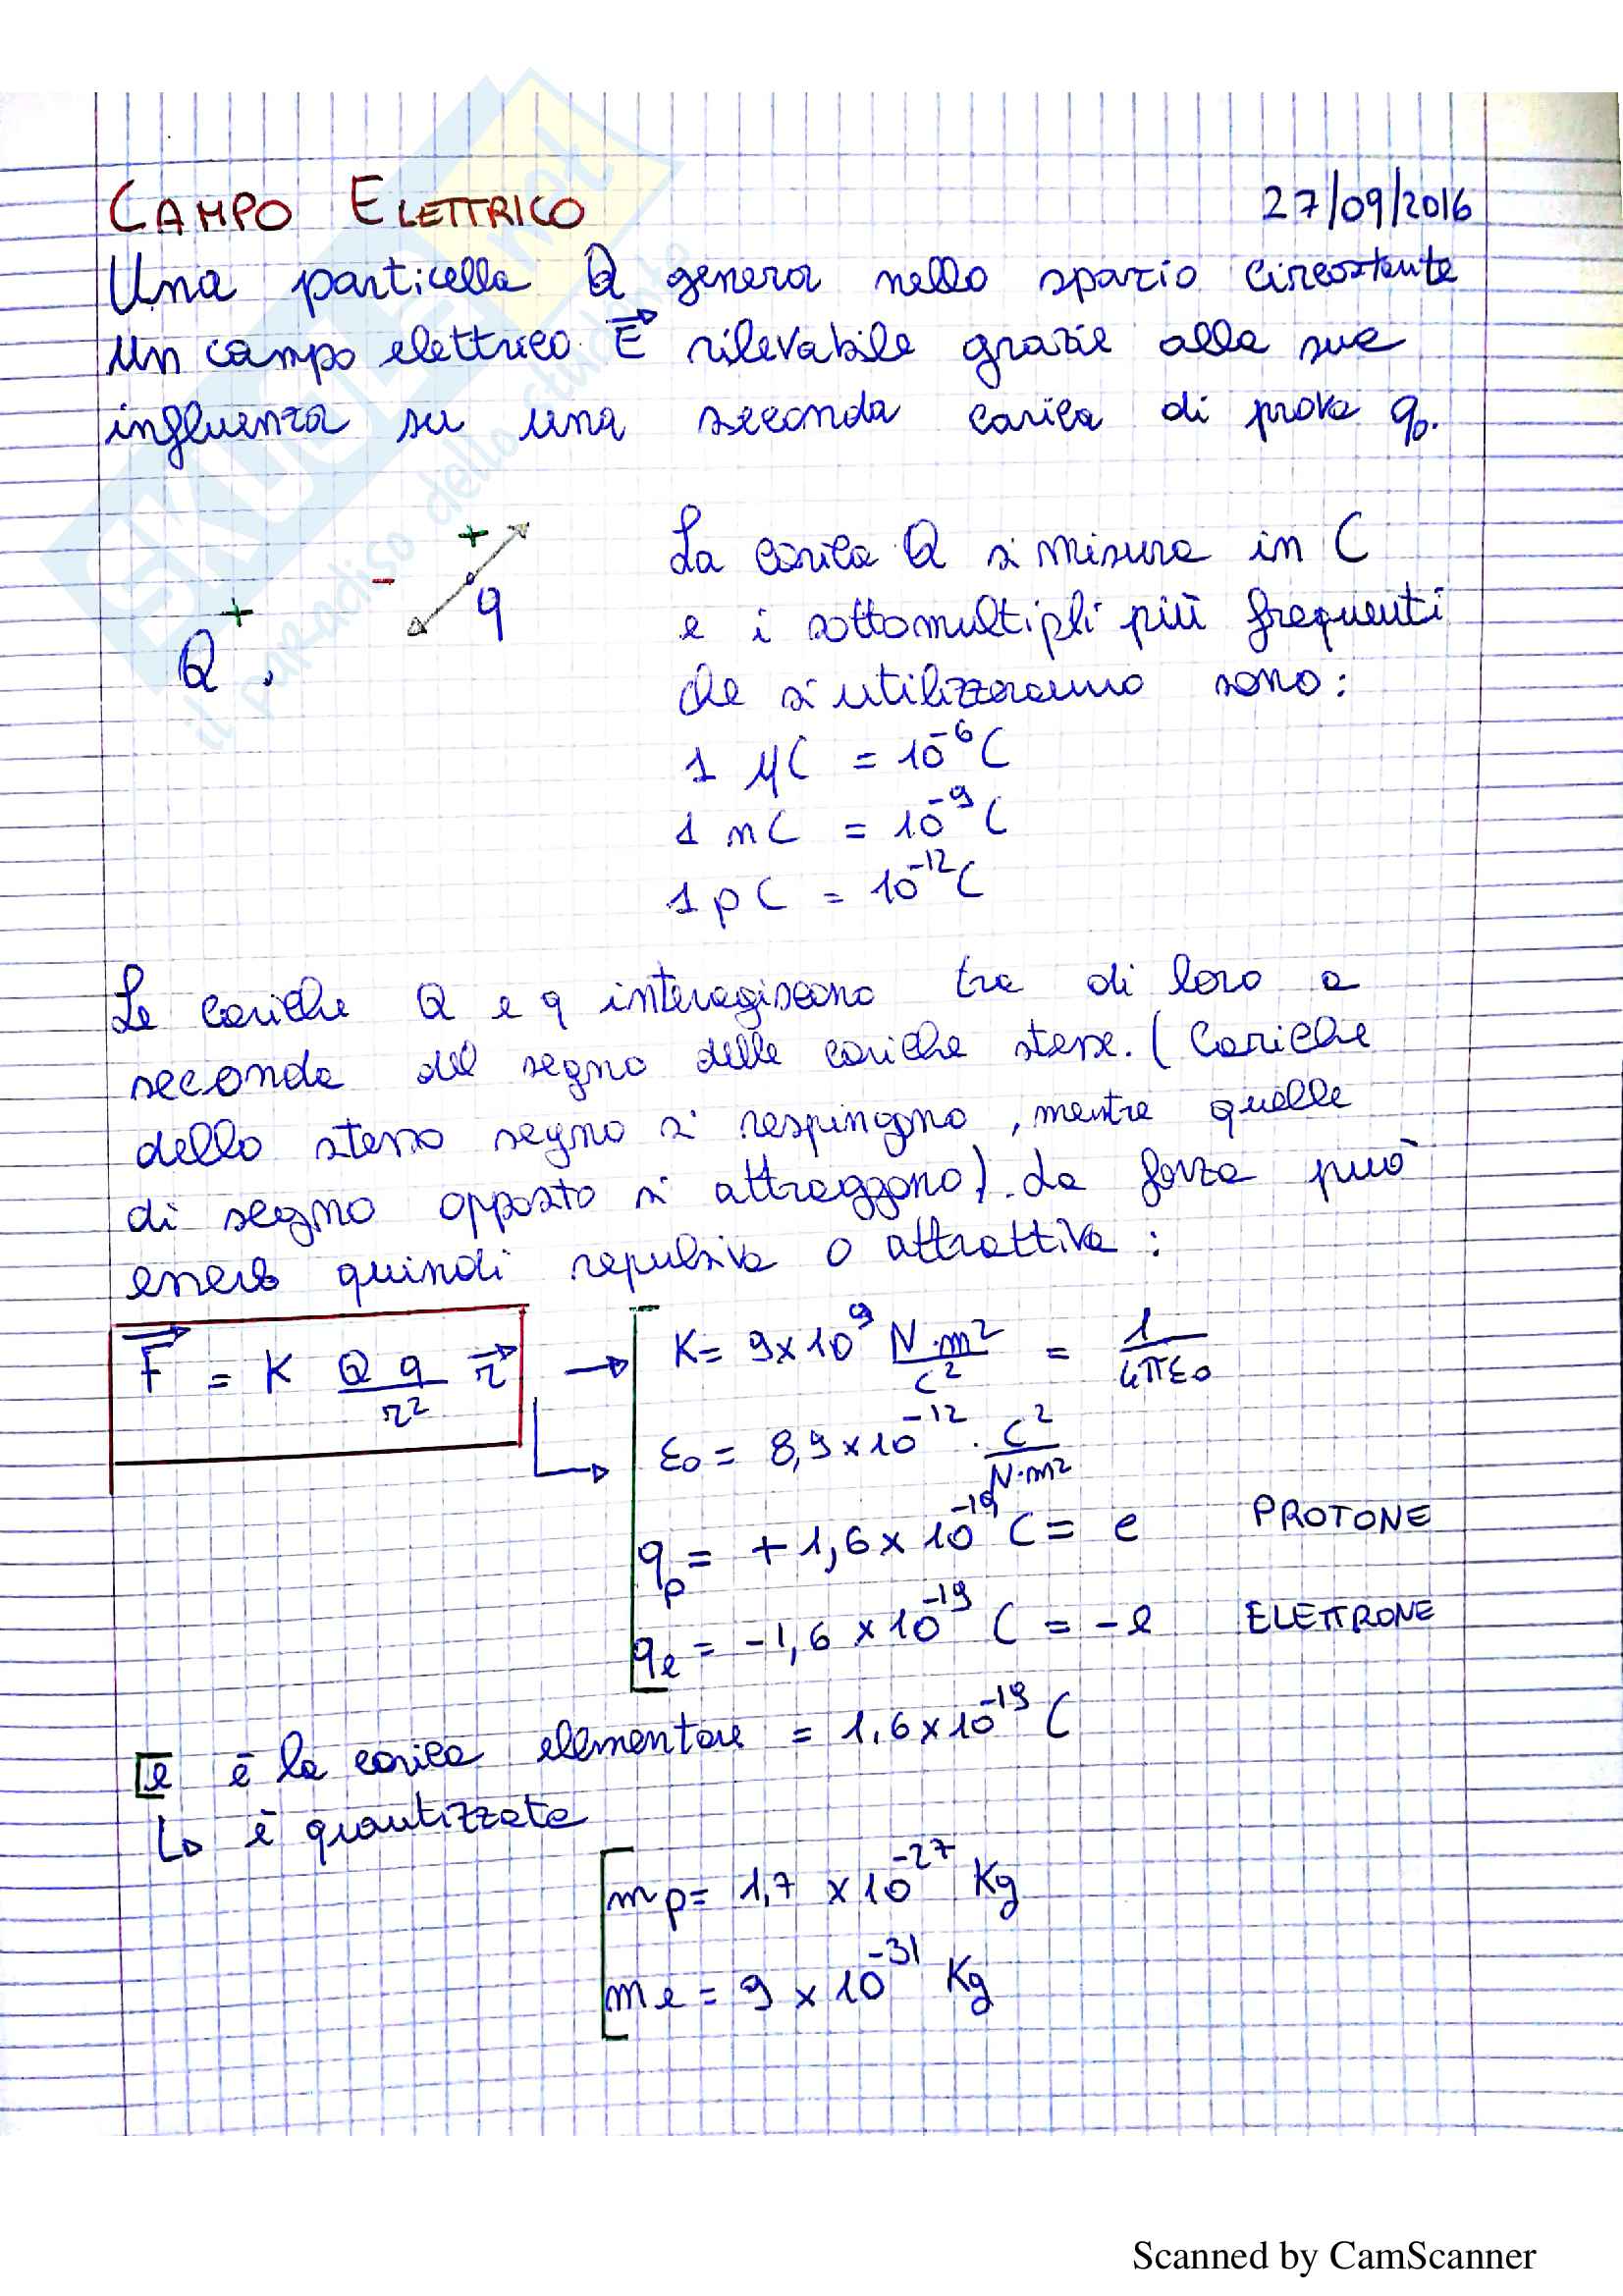 CAMPO ELETTRICO 27/09/2016
Una particella Q genera nello spazio circostante
un campo elettrico E⃗ rilevabile grazie alla sua
influenza su una seconda carica di prova q₀.
+
-
q
+
Q
La carica Q si misura in C
e i sottomultipli più frequenti
che si utilizzeranno sono:
1 μC = 10⁻⁶ C
1 nC = 10⁻⁹ C
1 pC = 10⁻¹² C
Le cariche Q e q interagiscono tra di loro a
seconda del segno delle cariche stesse. (Cariche
dello stesso segno si respingono, mentre quelle
di segno opposto si attraggono). La forza può
essere quindi repulsiva o attrattiva:
F⃗ = K Qq/r² r⃗ → K = 9x10⁹ N·m²/C² = 1/4πε₀
ε₀ = 8,9x10⁻¹² · C²/N·m²
qp = +1,6x10⁻¹⁹ C = e PROTONE
qe = -1,6x10⁻¹⁹ C = -e ELETTRONE
e è la carica elementare = 1,6x10⁻¹⁹ C
↳ è quantizzata
mp = 1,7 x10⁻²⁷ Kg
me = 9 x10⁻³¹ Kg
SKUOLA.net
il paradiso dello studente
Scanned by CamScanner